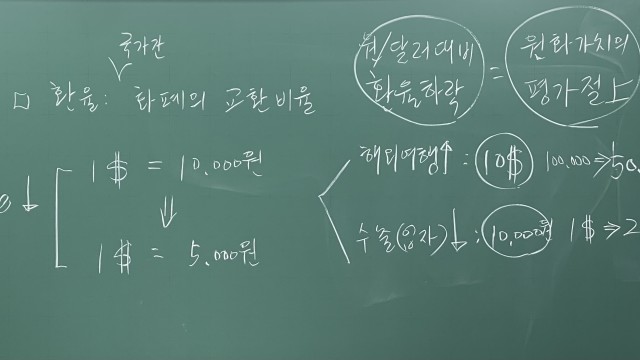 국가간
□ 환율: 화폐의 교환비율
1$ = 10.000원
⇓
1$ = 5.000원
원/달러대비 환율하락 = 원화가치의 평가절상
해외여행↑ : 10$ 100.000 ⇒ 50.
수출(입자)↓ : 10.000원 1$ ⇒ 2